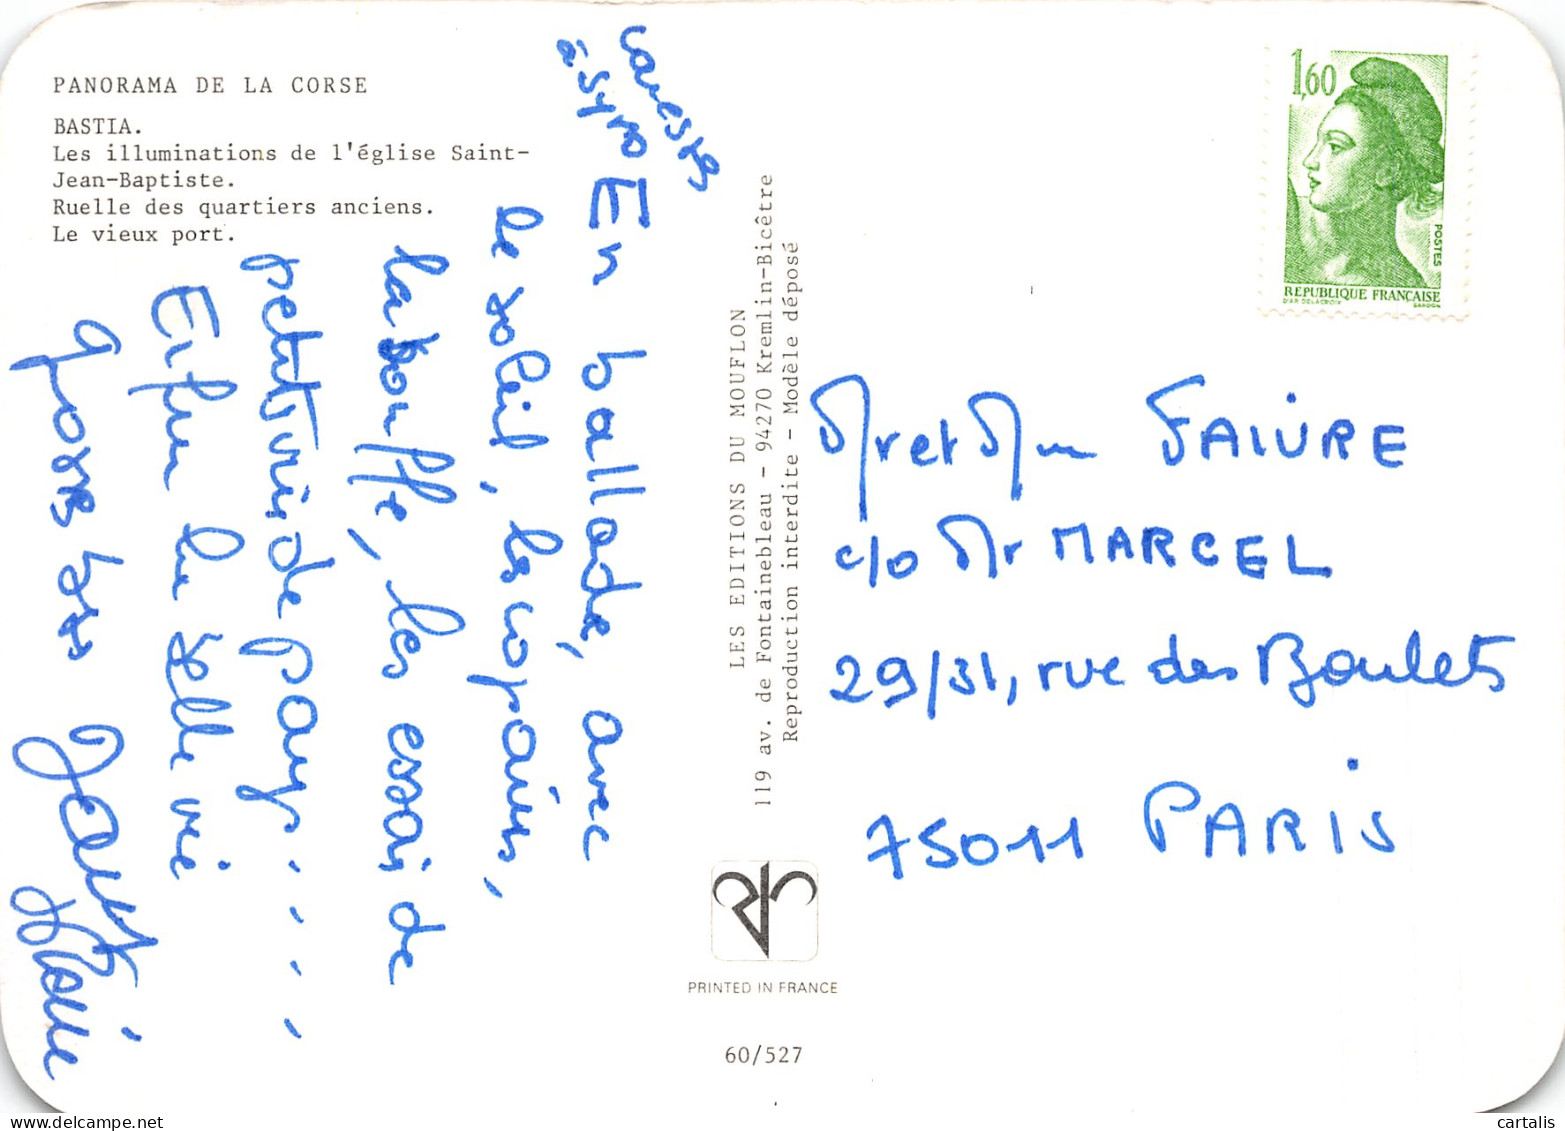 PANORAMA DE LA CORSE
BASTIA.
Les illuminations de l'église Saint-
Jean-Baptiste.
Ruelle des quartiers anciens.
Le vieux port.
En ballade, avec
le soleil, les copains,
la bouffe, les essai de
petit vin de pays......
Enfin la belle vie
gros bis
à
LES EDITIONS DU MOUFLON
119 av. de Fontainebleau - 94270 Kremlin-Bicêtre
Reproduction interdite - Modèle déposé
PRINTED IN FRANCE
60/527
1,60
POSTES
REPUBLIQUE FRANÇAISE
D'AP. DELACROIX
GANDON
Mr et Mme FAIVRE
c/o Mr MARCEL
29/31, rue des Boulets
75011 PARIS
https://www.delcampe.net
cartalis